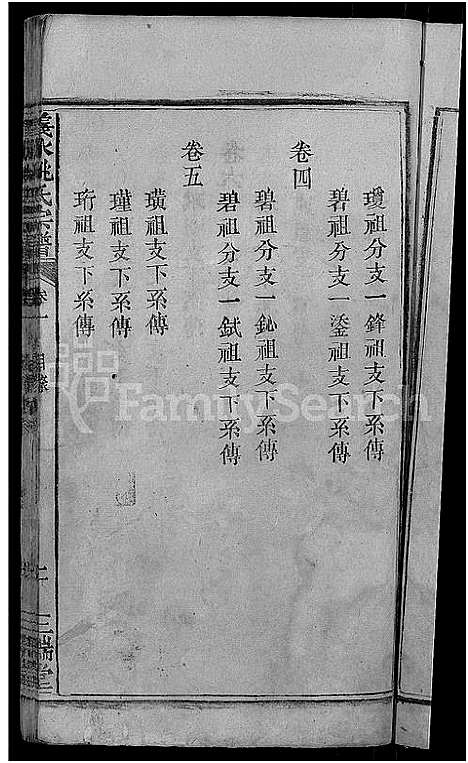 瓊祖分支一鋒祖支下系傳
碧祖分支一鋈祖支下系傳
卷四
碧祖分支一鈊祖支下系傳
碧祖分支一鉽祖支下系傳
卷五
璜祖支下系傳
瑾祖支下系傳
珩祖支下系傳
義水姚氏宗譜 卷一 目錄 三瑞堂
FamilySearch